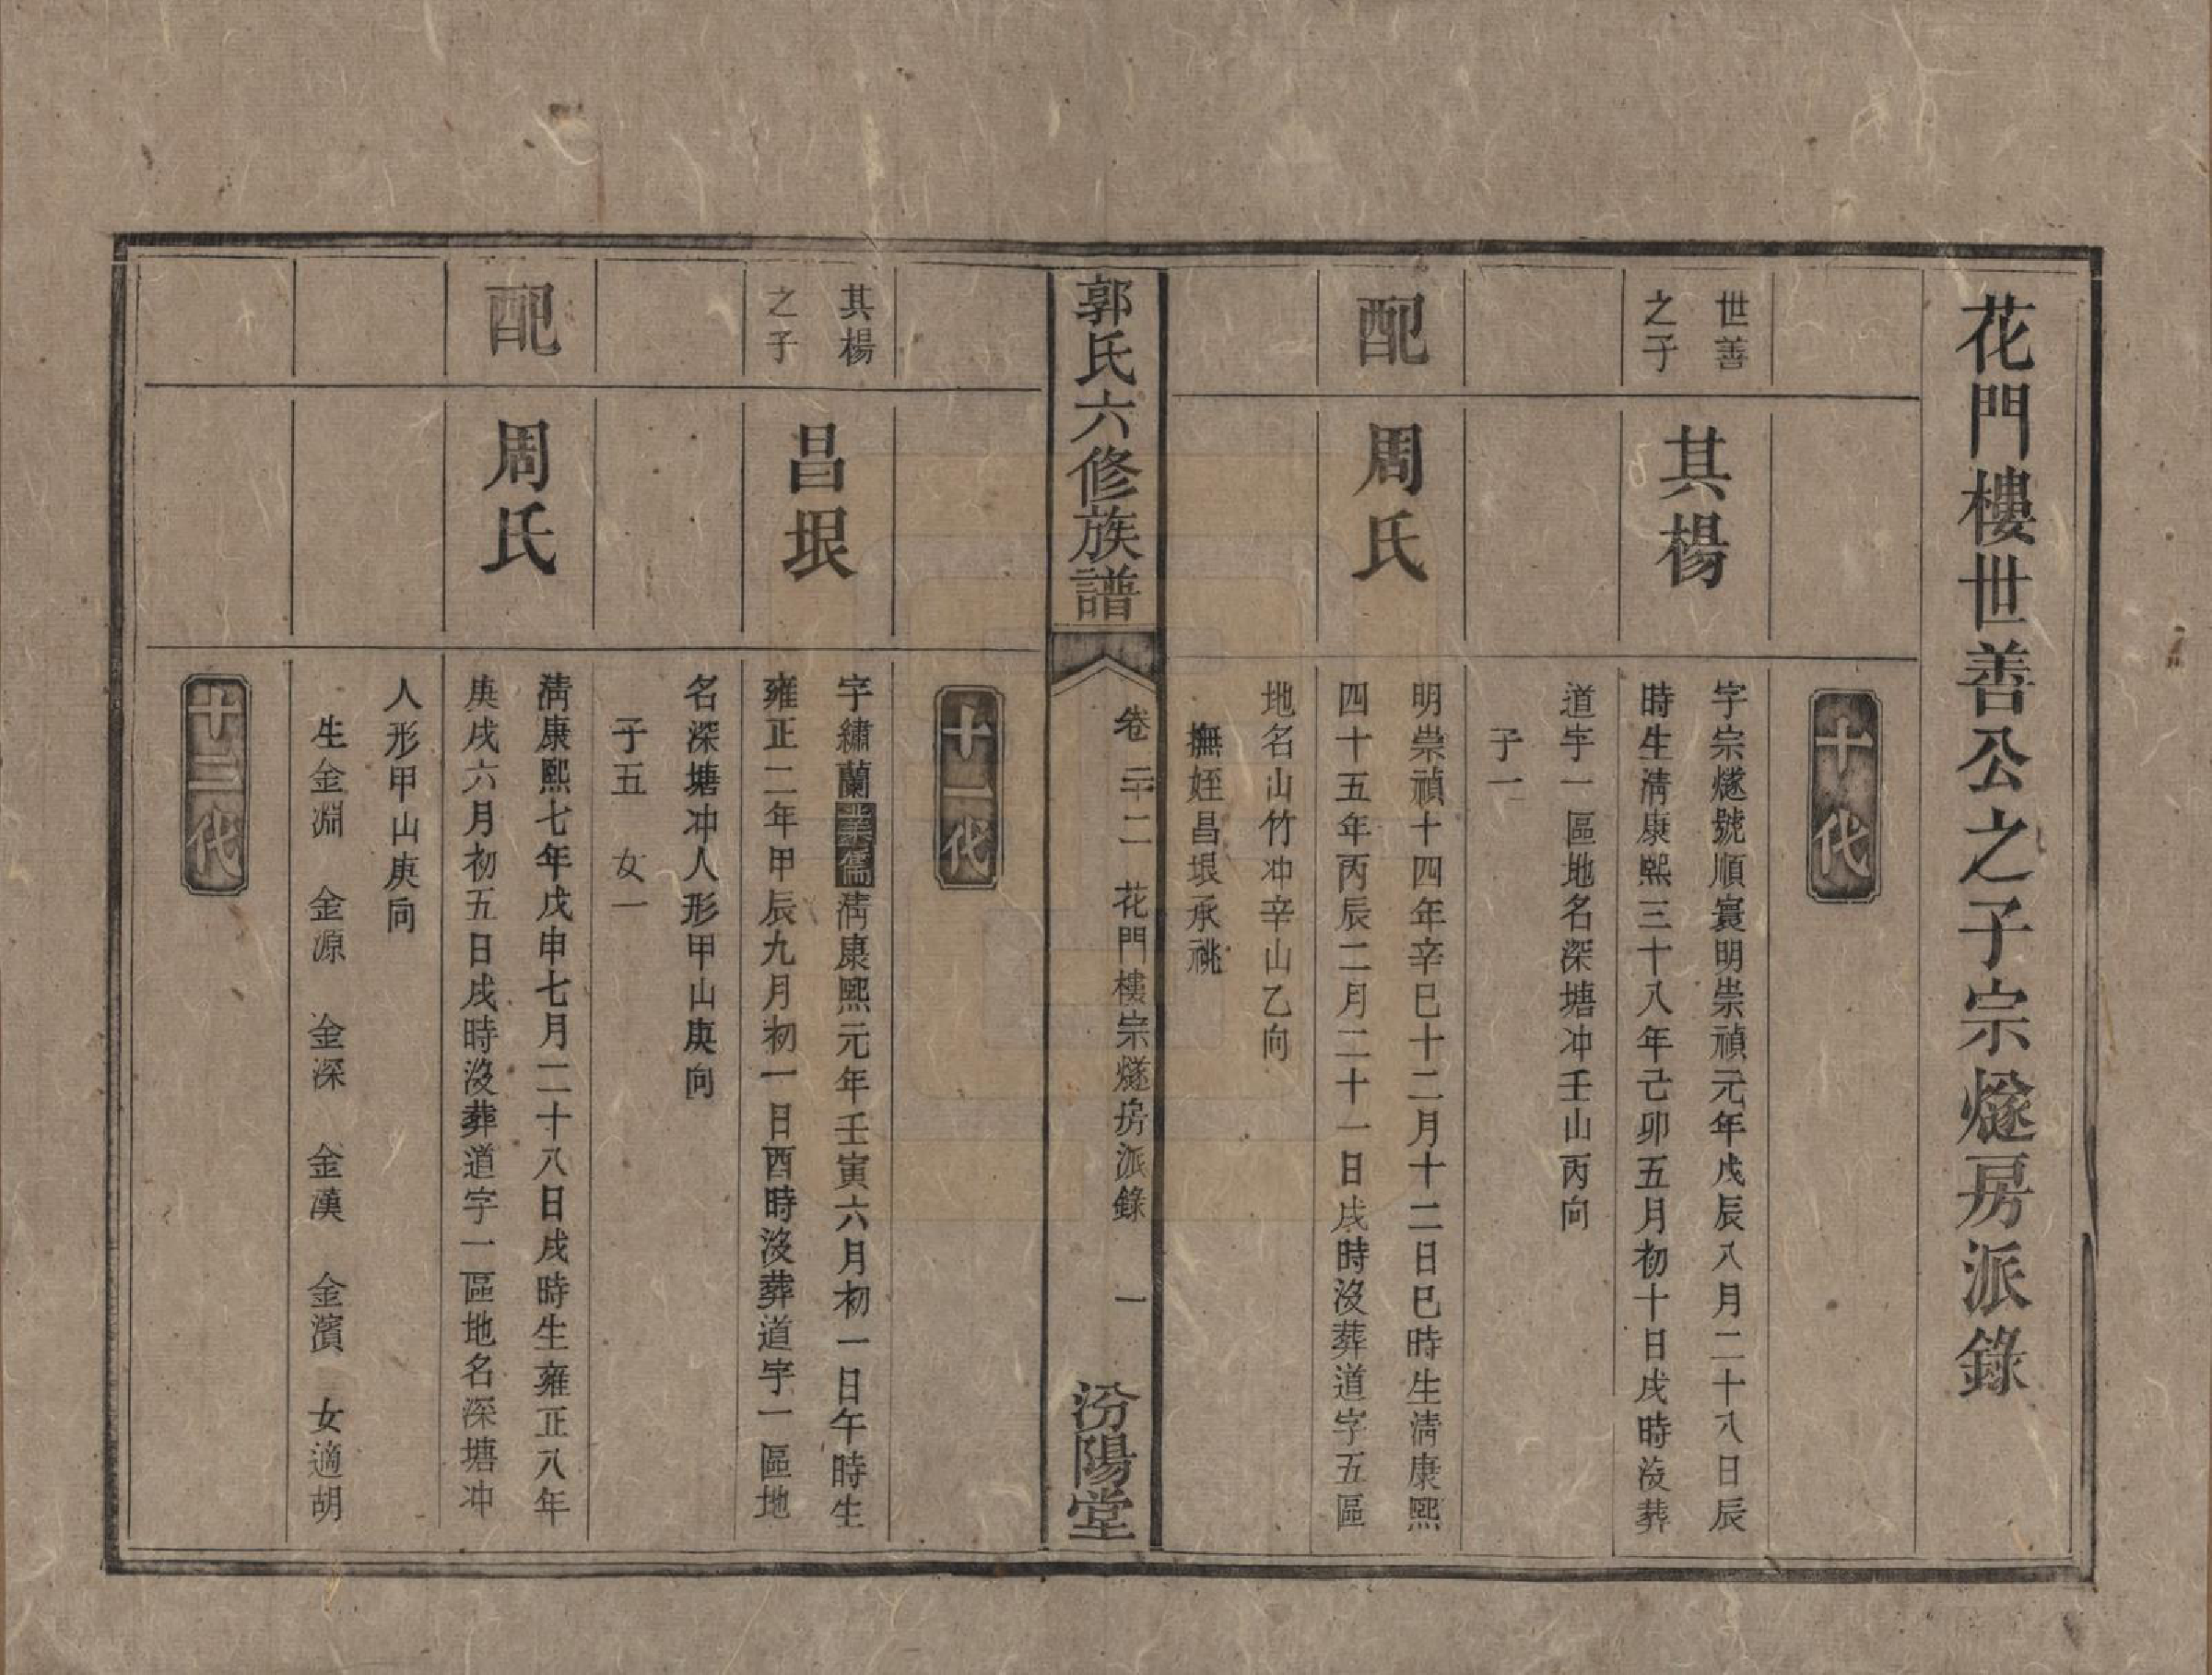 花門樓世善公之子宗燧房派錄
十代
世善
之子
其楊
字宗燧號順寰明崇禎元年戊辰八月二十八日辰
時生淸康熙三十八年己卯五月初十日戌時沒葬
道字一區地名深塘冲壬山丙向
子一
配
周氏
明崇禎十四年辛巳十二月十二日巳時生淸康熙
四十五年丙辰二月二十一日戌時沒葬道字五區
地名山竹冲辛山乙向
撫姪昌垠承祧
郭氏六修族譜
卷二十二 花門樓宗燧房派錄 一
汾陽堂
十一代
其楊
之子
昌垠
字繡蘭業儒淸康熙元年壬寅六月初一日午時生
雍正二年甲辰九月初一日酉時沒葬道字一區地
名深塘冲人形甲山庚向
子五 女一
配
周氏
淸康熙七年戊申七月二十八日戌時生雍正八年
庚戌六月初五日戌時沒葬道字一區地名深塘冲
人形甲山庚向
生金淵 金源 金深 金漢 金濱 女適胡
十二代